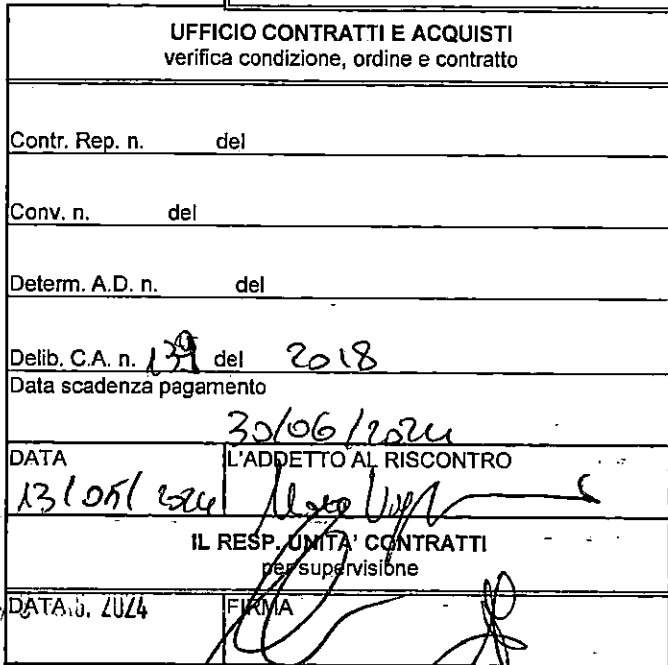 UFFICIO CONTRATTI E ACQUISTI
verifica condizione, ordine e contratto
Contr. Rep. n. del
Conv. n. del
Determ. A.D. n. del
Delib. C.A. n. del 2018
Data scadenza pagamento
30/06/2024
DATA L'ADDETTO AL RISCONTRO
13/05/2024
IL RESP. UNITA' CONTRATTI
per supervisione
DATA 2024 FIRMA